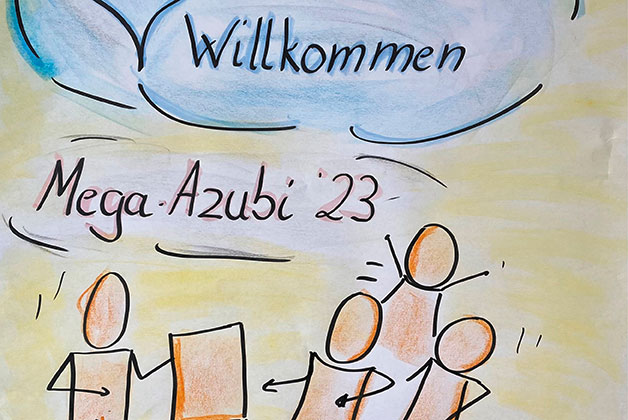 Willkommen
Mega-Azubi '23